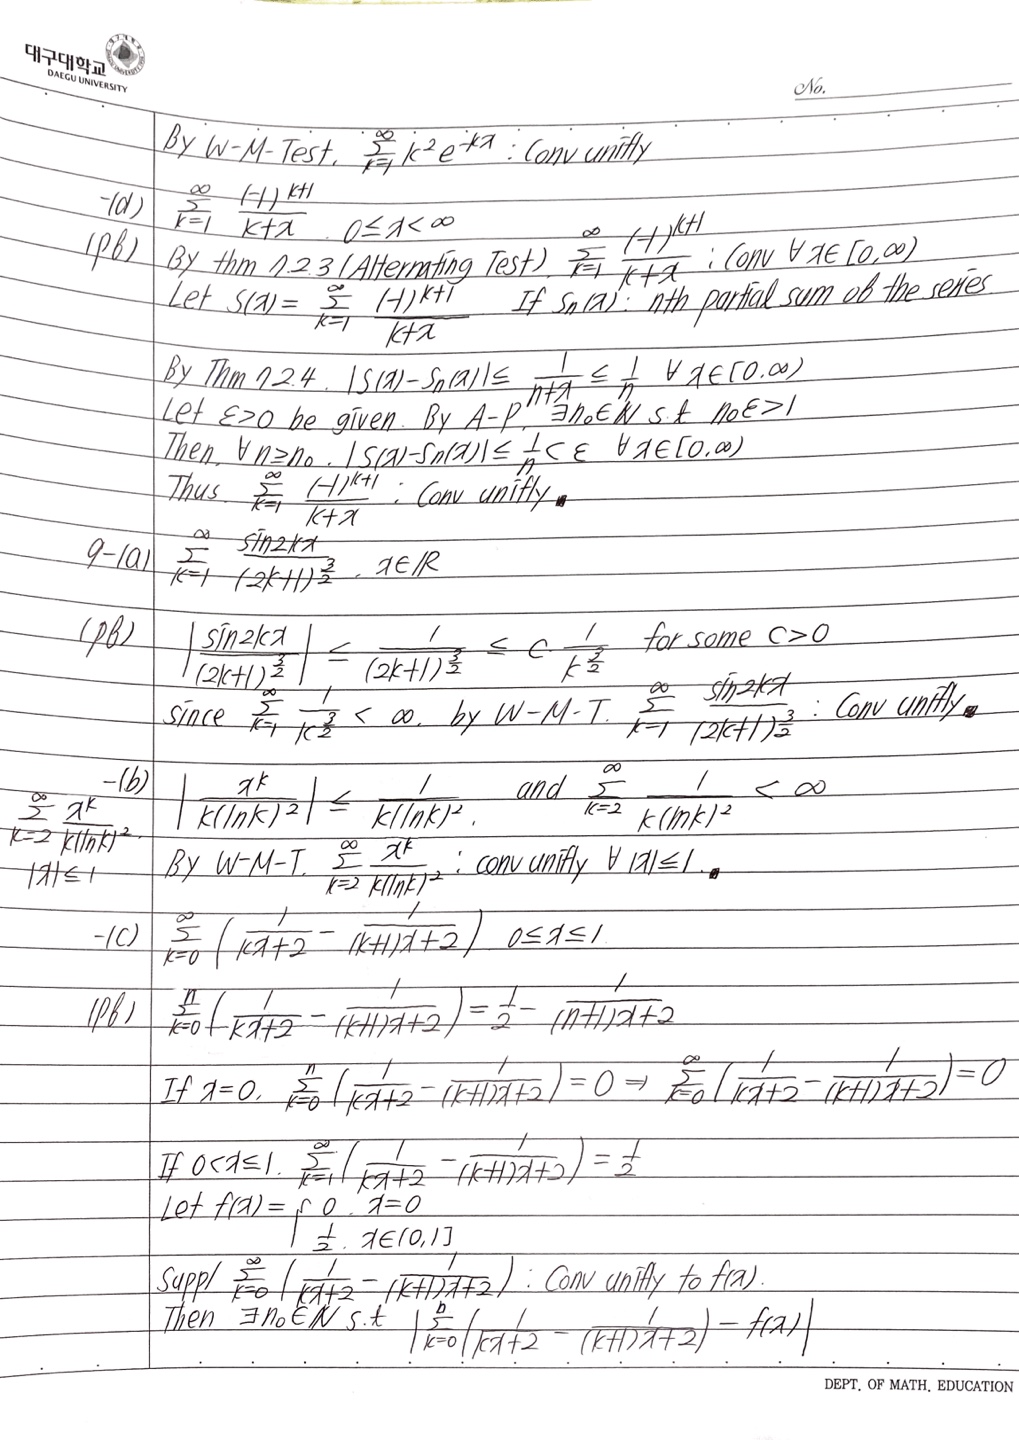 대구대학교
DAEGU UNIVERSITY
No.
By W-M-Test. ∑_{k=1}^{∞} k² e^{-kx} : Conv unifly
-(d) ∑_{k=1}^{∞} (-1)^{k+1}/(k+x) . 0≤x<∞
(pf) By thm 7.2.3 (Alternating Test). ∑_{k=1}^{∞} (-1)^{k+1}/(k+x) : Conv ∀x∈[0,∞)
Let S(x) = ∑_{k=1}^{∞} (-1)^{k+1}/(k+x) If Sn(x) : nth partial sum of the series
By Thm 7.2.4. |S(x)-Sn(x)| ≤ 1/(n+x) ≤ 1/n ∀x∈[0.∞)
Let ε>0 be given. By A-P, ∃n₀∈N s.t n₀ε>1
Then, ∀n≥n₀. |S(x)-Sn(x)| ≤ 1/n < ε ∀x∈[0,∞)
Thus. ∑_{k=1}^{∞} (-1)^{k+1}/(k+x) : Conv unifly.
9-(a) ∑_{k=1}^{∞} sin2kx/(2k+1)^{3/2} . x∈ℝ
(pf) |sin2kx/(2k+1)^{3/2}| ≤ 1/(2k+1)^{3/2} ≤ C 1/k^{3/2} for some C>0
since ∑_{k=1}^{∞} 1/k^{3/2} < ∞. by W-M-T. ∑_{k=1}^{∞} sin2kx/(2k+1)^{3/2} : Conv unifly.
-(b) |x^k/(k(lnk)²)| ≤ 1/(k(lnk)²). and ∑_{k=2}^{∞} 1/(k(lnk)²) < ∞
∑_{k=2}^{∞} x^k/(k(lnk)²).
|x|≤1
By W-M-T. ∑_{k=2}^{∞} x^k/(k(lnk)²) : conv unifly ∀|x|≤1.
-(c) ∑_{k=0}^{∞} (1/(kx+2) - 1/((k+1)x+2)) 0≤x≤1
(pf) ∑_{k=0}^{n} (1/(kx+2) - 1/((k+1)x+2)) = 1/2 - 1/((n+1)x+2)
If x=0. ∑_{k=0}^{n} (1/(kx+2) - 1/((k+1)x+2)) = 0 ⇒ ∑_{k=0}^{∞} (1/(kx+2) - 1/((k+1)x+2)) = 0
If 0<x≤1. ∑_{k=1}^{∞} (1/(kx+2) - 1/((k+1)x+2)) = 1/2
Let f(x) = { 0 . x=0
1/2 . x∈(0,1]
Supp/ ∑_{k=0}^{∞} (1/(kx+2) - 1/((k+1)x+2)) : Conv unifly to f(x).
Then ∃n₀∈N s.t |∑_{k=0}^{n} (1/(kx+2) - 1/((k+1)x+2)) - f(x)|
DEPT. OF MATH. EDUCATION